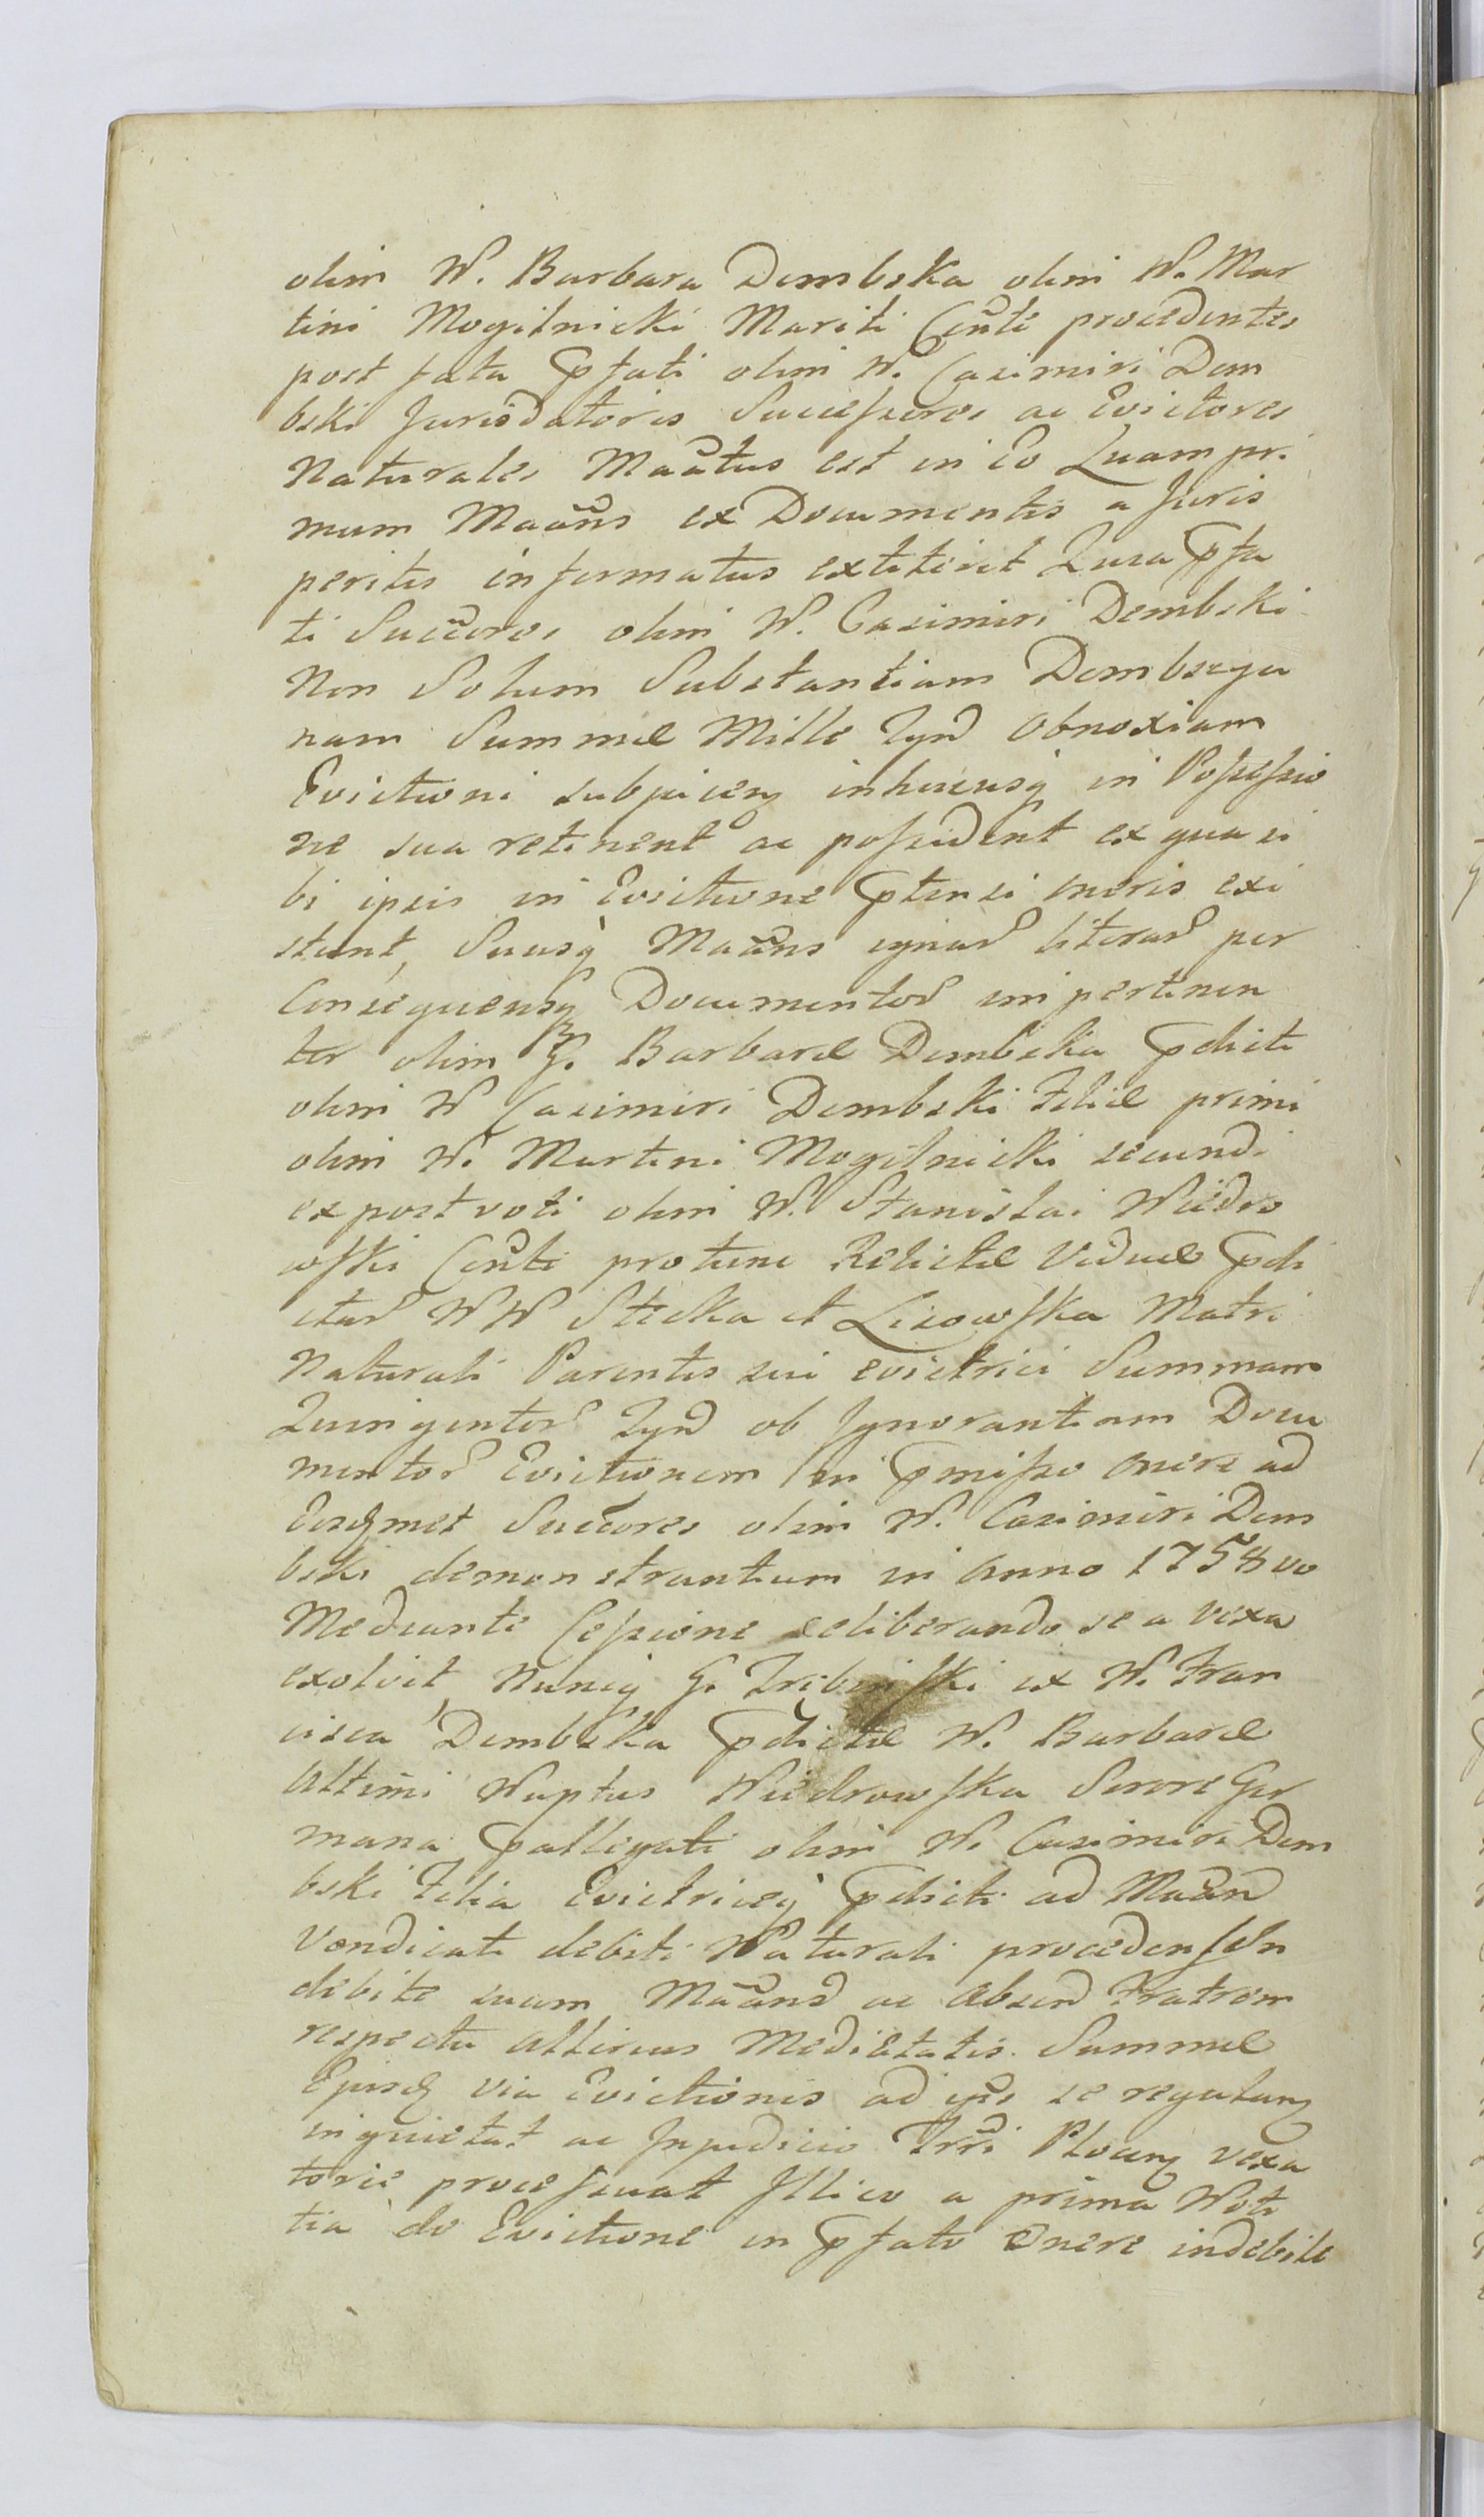 olim W. Barbara Dembska olim W. Mar
tini Mogilnicki Mariti Cons̃te procedentes
post fata p̃fati olim W. Casimiri Dem
bski Jurisdatoris Successores ac Evictores
Naturales Maãtus est in Eo Quam pri
mum Maãns ex Documentis a Juris
peritis informatus extiterit Quia p̃fa
ti Succ̃ores olim W. Casimiri Dembski
Non Solum Substantiam Dembscya
nam Summæ Mille Tynf obnoxiam
Evictioni subjicienq inhucusq in Possessio
ne sua retinent ac possident ex qua si
bi ipsis in Evictione p̃tensi oneris exi
stunt, Suusq Maãns ignar literar per
Consequensq Documentor impertinen
ter olim G. Barbaræ Dembska p̃dicti
olim W Casimiri Dembski Filiæ primi
olim W. Martini Mogilnicki secundi
ex post voti olim W. Stanislai Wiedro
wski Cons̃ti protunc Relictæ Viduæ p̃di
ctar WW Stecka et Lisowska Matri
Naturali Parentis sui evictrici Summam
Quingentor Tynf ob Ignorantiam Docu
mentor Evictionem in p̃misso onere ad
Eosdmet Succ̃ores olim W. Casimiri Dem
bski demonstrantium in Anno 1758vo
Mediante Cessione deliberando se a vexa
exolvit, Nuncq G. Tribinski ex W. Fran
cisca Dembska p̃dictæ W. Barbaræ
Altimi Nuptus Wiedrowska Sorore Ger
mana p̃allegati olim W. Casimiri Dem
bski Filia Evictriceq p̃dicti ad Maãnd
Vendicati debiti Naturali proceden In
debite suum Maãnd ac Absend Fratrem
respectu Altirius Medietatis Summæ
Ejusd via Evictionis ad ip̃s se regulanq
inquietat ac Injudicio Trr̃i Plocenq vexa
torie processuat Illico a prima Noti
tia de Evictione in p̃fato Onere indebite